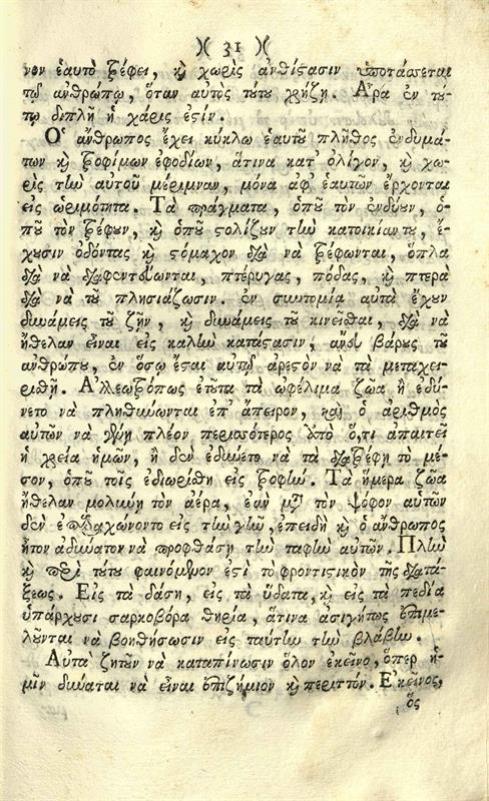 )( 31 )(
νον ἑαυτὸ τρέφει, καὶ χωρὶς ἀνθίστασιν ὑποτάσσεται
τῷ ἀνθρώπῳ, ὅταν αὐτὸς τούτου χρήζῃ. Ἄρα ἐν τού-
τῳ διπλῆ ἡ χάρις ἐστίν.
Ὁ ἄνθρωπος ἔχει κύκλῳ ἑαυτοῦ πλῆθος ἐνδυμά-
των καὶ τροφίμων ἐφοδίων, ἅτινα κατ' ὀλίγον, καὶ χω-
ρὶς τὴν αὐτοῦ μέριμναν, μόνα ἀφ' ἑαυτῶν ἔρχονται
εἰς ὡριμότητα. Τὰ πράγματα, ὁποῦ τὸν ἐνδύουν, ὁ-
ποῦ τὸν τρέφουν, καὶ ὁποῦ στολίζουν τὴν κατοικίαν του, ἔ-
χουσιν ὀδόντας καὶ στόμαχον διὰ νὰ τρέφωνται, ὅπλα
διὰ νὰ διαφεντεύωνται, πτέρυγας, πόδας, καὶ πτερὰ
διὰ νὰ τοῦ πλησιάζωσιν. ἐν συντομίᾳ αὐτὰ ἔχουν
δυνάμεις τοῦ ζῆν, καὶ δυνάμεις τοῦ κινεῖσθαι, διὰ νὰ
ἤθελαν εἶναι εἰς καλὴν κατάστασιν, ἄνευ βάρους τοῦ
ἀνθρώπου, ἐν ὅσῳ ἔσται αὐτῷ ἀρεστὸν νὰ τὰ μεταχει-
ρισθῇ. Ἀλλεοτρόπως ἐτοῦτα τὰ ὠφέλιμα ζῶα ἢ ἐδύ-
νετο νὰ πληθύνωνται ἐπ' ἄπειρον, καὶ ὁ ἀριθμὸς
αὐτῶν νὰ γένῃ πλέον περισσότερος ὑπὸ ὅ,τι ἀπαιτεῖ
ἡ χρεία ἡμῶν, ἢ δὲν ἐδύνετο νὰ τὰ διατρέφῃ τὸ μέ-
σον, ὁποῦ τοῖς ἐδιωρίσθη εἰς τροφήν. Τὰ ἥμερα ζῶα
ἤθελαν μολύνῃ τὸν ἀέρα, ἐὰν μετὰ τὸν ψόφον αὐτῶν
δὲν ἐπαραχώνοντο εἰς τὴν γῆν, ἐπειδὴ καὶ ὁ ἄνθρωπος
ἦτον ἀδύνατον νὰ προφθάσῃ τὴν ταφὴν αὐτῶν. Πλὴν
καὶ περὶ τούτου φαινόμενον ἐστὶ τὸ φροντιστικὸν τῆς διατά-
ξεως. Εἰς τὰ δάση, εἰς τὰ ὕδατα, καὶ εἰς τὰ πεδία
ὑπάρχουσι σαρκοβόρα θηρία, ἅτινα ἀσιγήτως ἐπιμε-
λοῦνται νὰ βοηθήσωσιν εἰς ταύτην τὴν βλάβην.
Αὐτὰ ζητοῦν νὰ καταπίνωσιν ὅλον ἐκεῖνο, ὅπερ ἡ-
μῖν δύναται νὰ εἶναι ἐπιζήμιον καὶ περιττόν. Ἐκεῖνος,
ὃς